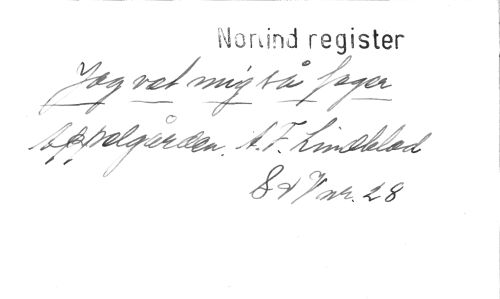 Norlind register
Jag vet mig så fager
Appelgården. A. F. Lindblad
S d V nr. 28